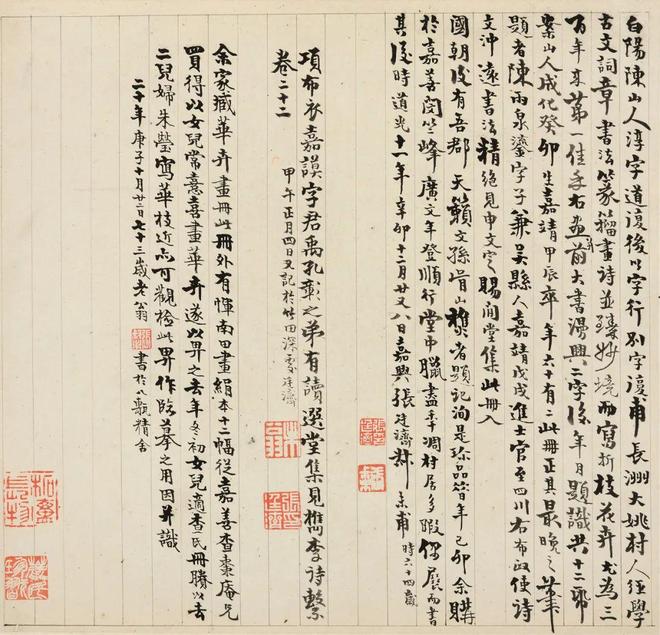 白陽陳山人淳字道復後以字行別字復甫長洲大姚村人經學
古文詞章書法篆籀畫詩並臻妙境而寫折枝花卉尤為三
百年來第一佳手右畫前大書漫興二字後年月題識共十二幀
案山人成化癸卯生嘉靖甲辰卒年六十有二此冊正其最晚之筆
題者陳雨泉鎏字子兼吳縣人嘉靖戊戌進士官至四川右布政使詩
文沖遠書法精絕見申文定賜閒堂集此冊入
國朝後有吾郡天籟文孫山樵者題記洵是珍品昔年己卯余購
於嘉善閔竺峰廣文年登順行堂中臘盡冬凋村居多暇偶展而書
其後時道光十一年辛卯十二月廿又八日嘉興張廷濟叔未甫 時六十四歲
項布衣嘉謨字君禹孔彰之弟有讀選堂集見檇李詩繫
卷二十二
甲午正月四日又記於竹田深處 廷濟
余家藏華卉畫冊此冊外有惲南田畫絹本十二幅從嘉善查棗庵兄
買得以女兒常憙喜畫華卉遂以畀之去年冬初女兒適查氏冊勝以去
二兒婦朱瑩寫華枝近亦可觀檢此畀作臨摹之用因并識
二十年庚子十月廿二日七十三歲老翁 書於八甎精舍